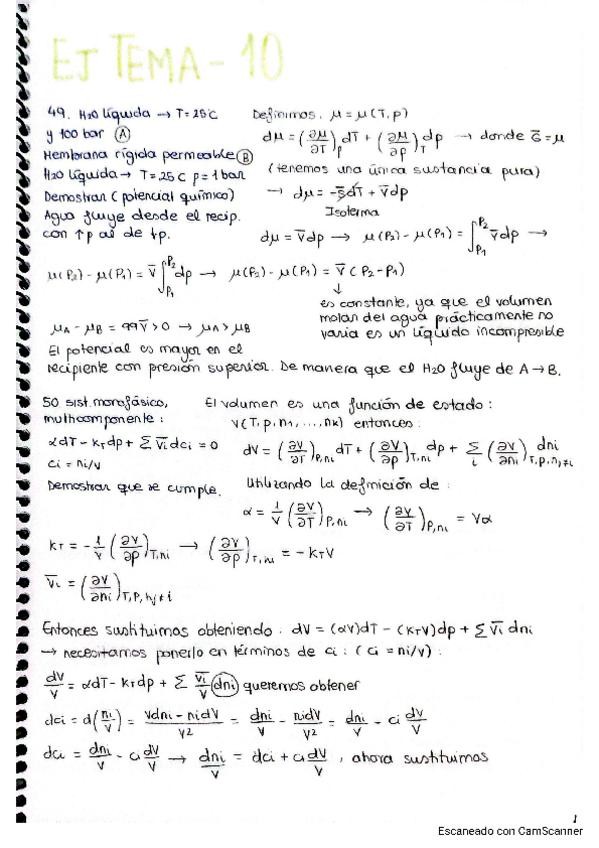 EJ TEMA - 10
49. H2O líquida → T = 25°C
y 100 bar (A)
Membrana rígida permeable (B)
H2O Líquida → T = 25 C p = 1 bar
Demostrar (potencial químico)
Agua fluye desde el recip.
con ↑p al de ↓p.
Definimos: μ = μ(T,p)
dμ = (∂μ/∂T)_p dT + (∂μ/∂p)_T dp → donde G̅ = μ
(tenemos una única sustancia pura)
→ dμ = -s̅dT + V̅dp
Isoterma
dμ = V̅dp → μ(P2) - μ(P1) = ∫_{P1}^{P2} V̅dp →
μ(P2) - μ(P1) = V̅ ∫_{P1}^{P2} dp → μ(P2) - μ(P1) = V̅ (P2 - P1)
↓
es constante, ya que el volumen
molar del agua prácticamente no
varia es un líquido incompresible
μA - μB = 99V̅ > 0 → μA > μB
El potencial es mayor en el
recipiente con presión superior. De manera que el H2O fluye de A → B.
50 sist. monofásico,
multicomponente:
αdT - κT dp + Σ V̅i dci = 0
ci = ni/v
Demostrar que se cumple.
El volumen es una función de estado:
V(T, p, n1, ..., nk) entonces:
dV = (∂V/∂T)_{P,ni} dT + (∂V/∂p)_{T,ni} dp + Σ_i (∂V/∂ni)_{T,p,nj≠i} dni
Utilizando la definición de:
α = 1/V (∂V/∂T)_{P,ni} → (∂V/∂T)_{P,ni} = Vα
κT = - 1/V (∂V/∂p)_{T,ni} → (∂V/∂p)_{T,ni} = - κT V
V̅i = (∂V/∂ni)_{T,P,nj≠i}
Entonces sustituimos obteniendo: dV = (αV)dT - (κTV)dp + Σ V̅i dni
→ necesitamos ponerlo en términos de ci: (ci = ni/v):
dV/V = αdT - κT dp + Σ V̅i/V (dni) queremos obtener
dci = d(ni/V) = (Vdni - nidV)/V² = dni/V - nidV/V² = dni/V - ci dV/V
dci = dni/V - ci dV/V → dni/V = dci + ci dV/V, ahora sustituimos
1
Escaneado con CamScanner